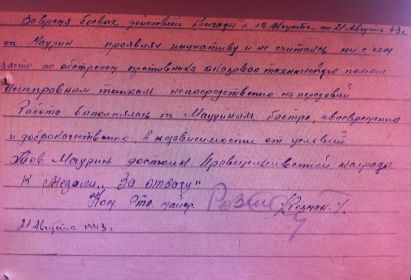 Во время боевых действий бригады с 12 Августа по 21 Августа 43г
т. Маурин проявляя инициативу и не считаясь ни с чем
часто по обстрелу противника оказывал техническую помощ
неисправным танкам непосредственно на передовой
Работа выполнялась т. Мауриным быстро, своевременно
и доброкачественно в независимости от условий
Тов Маурин достоин Правительственной награды
К медали „За отвагу"
Ком. Рто. майор /Резник./
21 Августа 1943 г.